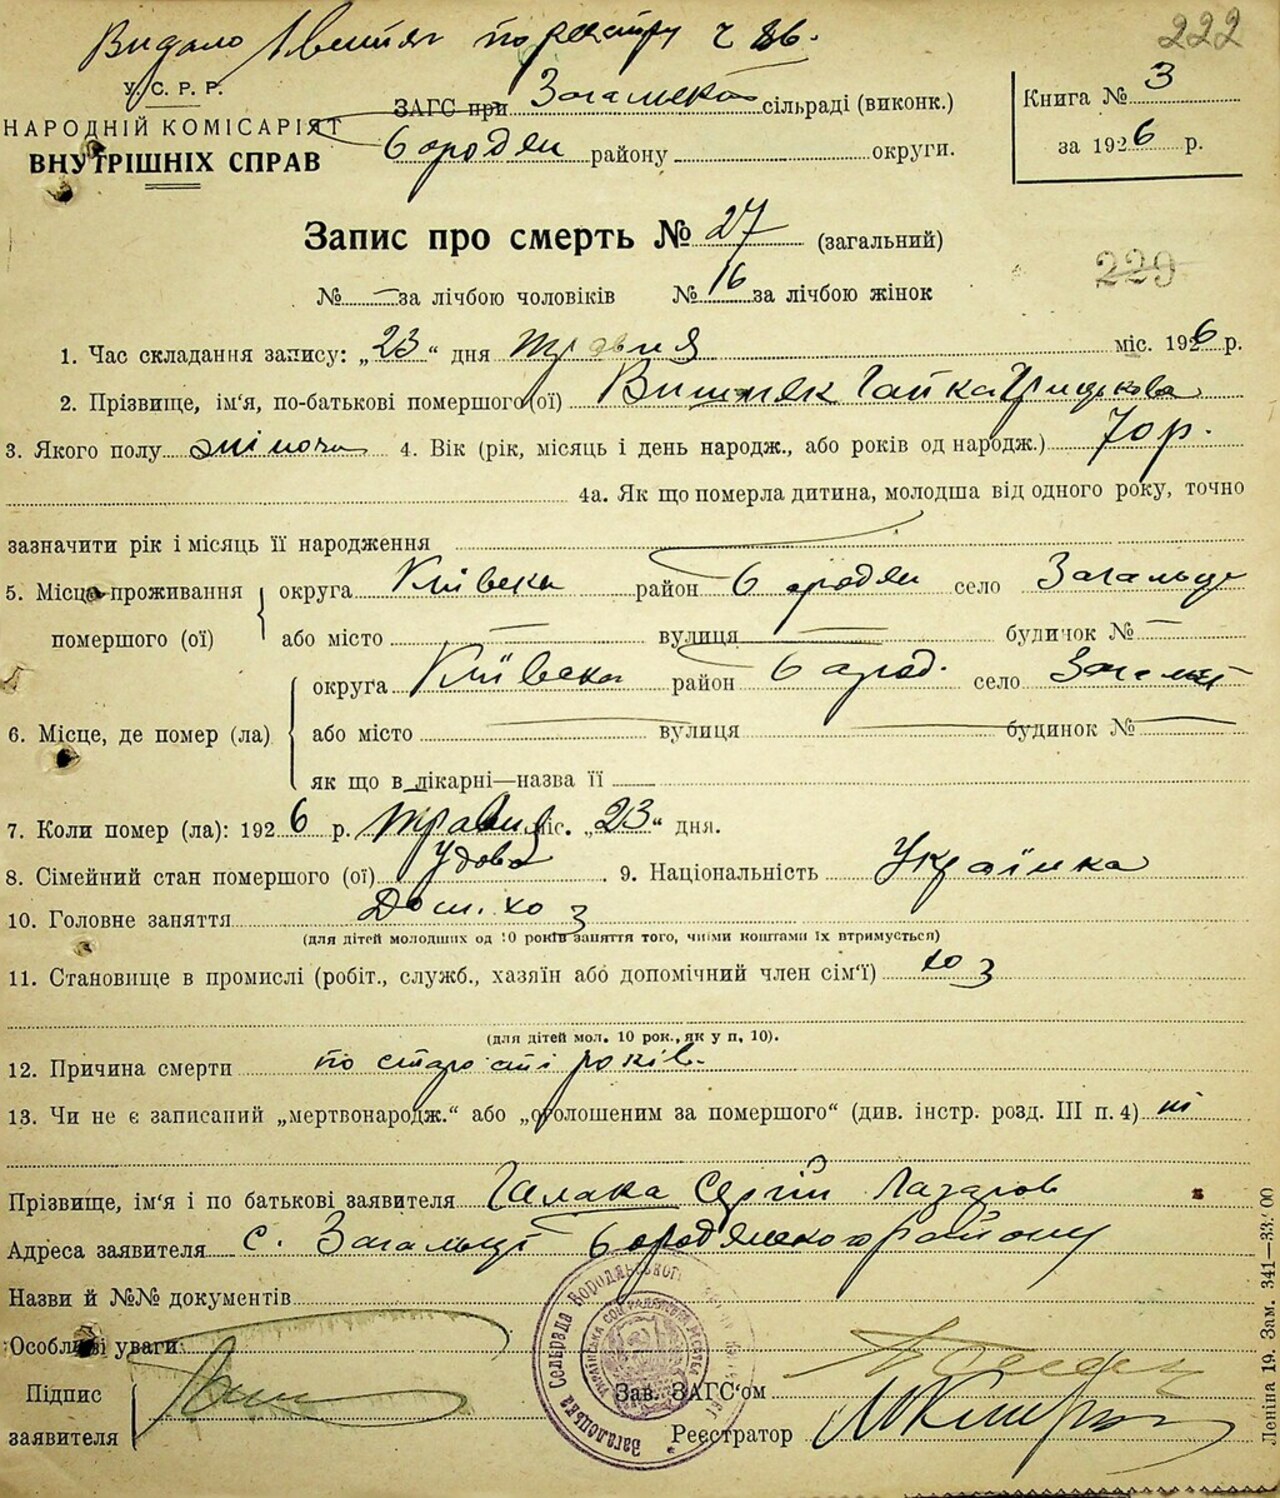 Видано Івитяг по реєстру ч 86.
222
У. С. Р. Р.
НАРОДНІЙ КОМІСАРІЯТ
ВНУТРІШНІХ СПРАВ
ЗАГС при Загальской сільраді (виконк.)
Бородян району округи.
Книга № 3
за 1926 р.
Запис про смерть № 27 (загальний)
229
№ — за лічбою чоловіків № 16 за лічбою жінок
1. Час складання запису: „23“ дня травня міс. 1926 р.
2. Прізвище, ім‘я, по-батькові помершого(ої) Вишняк Гапка Грицькова
3. Якого полу жіноча 4. Вік (рік, місяць і день народж., або років од народж.) 70 р.
4а. Як що померла дитина, молодша від одного року, точно
зазначити рік і місяць її народження
5. Місце проживання помершого (ої) округа Київска район Бородян село Загальце
або місто — вулиця — будинок № —
6. Місце, де помер (ла) округа Київска район Бород. село
або місто вулиця будинок №
як що в лікарні—назва її
7. Коли помер (ла): 1926 р. травня міс. „23“ дня.
8. Сімейний стан помершого (ої) Удова 9. Національність Українка
10. Головне заняття Дом. хоз
(для дітей молодших од 10 років заняття того, чиїми коштами їх втримується)
11. Становище в промислі (робіт., служб., хазяїн або допомічний член сім‘ї) хоз
(для дітей мол. 10 рок., як у п, 10).
12. Причина смерти по старості років.
13. Чи не є записаний „мертвонародж.“ або „оголошеним за помершого“ (див. інстр. розд. III п. 4) ні
Прізвище, ім‘я і по батькові заявителя Галака Сергій Лазаров
Адреса заявителя с. Загальці Бородянського району
Назви й №№ документів
Особливі уваги:
Підпис заявителя
Зав. ЗАГС‘ом
Реєстратор
Загалецька Сельрада Бородянського
Леніна 19. Зам. 341—33